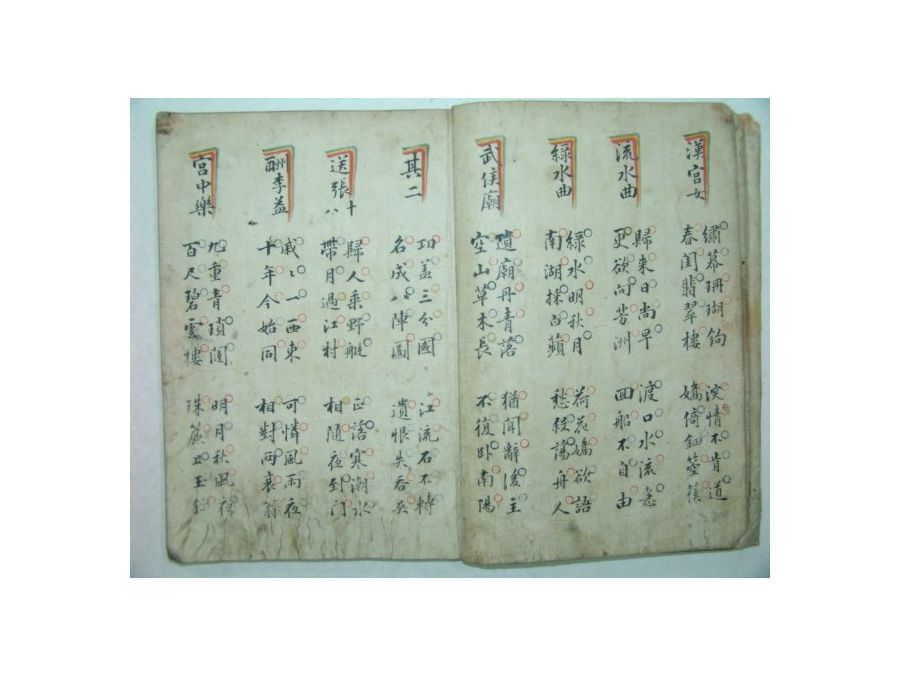 漢宮女
繡幕珊瑚鉤
春閨翡翠樓
深情不肯道
嬌倚鈿箜篌
流水曲
歸來日尚早
更欲向芳洲
渡口水流急
回船不自由
綠水曲
綠水明秋月
南湖採白蘋
荷花嬌欲語
愁殺蕩舟人
武侯廟
遺廟丹青落
空山草木長
猶聞辭後主
不復卧南陽
其二
功盖三分國
名成八陣圖
江流石不轉
遺恨失吞吳
送張十八
歸人乘野艇
帶月過江村
正落寒潮水
相隨夜到門
酬李益
戚〻一西東
十年今始同
可憐風雨夜
相對兩衰翁
宮中樂
九重青瑣闥
百尺碧雲樓
明月秋風夜
珠簾上玉鉤